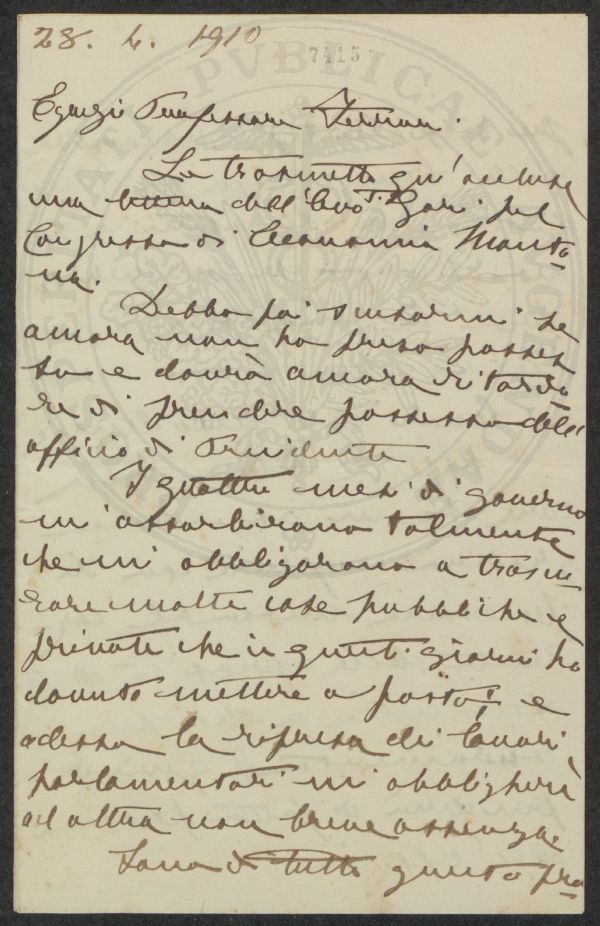 28. 4. 1910
7415
Egregio Professore Ferrari.
Le trasmetto qu'acclusa
una lettera dell'Avv. Gori sul
Congresso di Economia Monta-
na.
Debbo poi scusarmi se
ancora non ho preso posses-
so e dovrò ancora ritarda-
re di prendere possesso dell'
officio di Presidente
I quattro mesi di governo
m'assorbirono talmente
che mi obbligarono a trascu-
rare molte cose pubbliche e
private che in questi giorni ho
dovuto mettere a posto; e
adesso la ripresa dei lavori
parlamentari mi obbligherà
ad altra non breve assenza.
Sono di tutto questo pro-